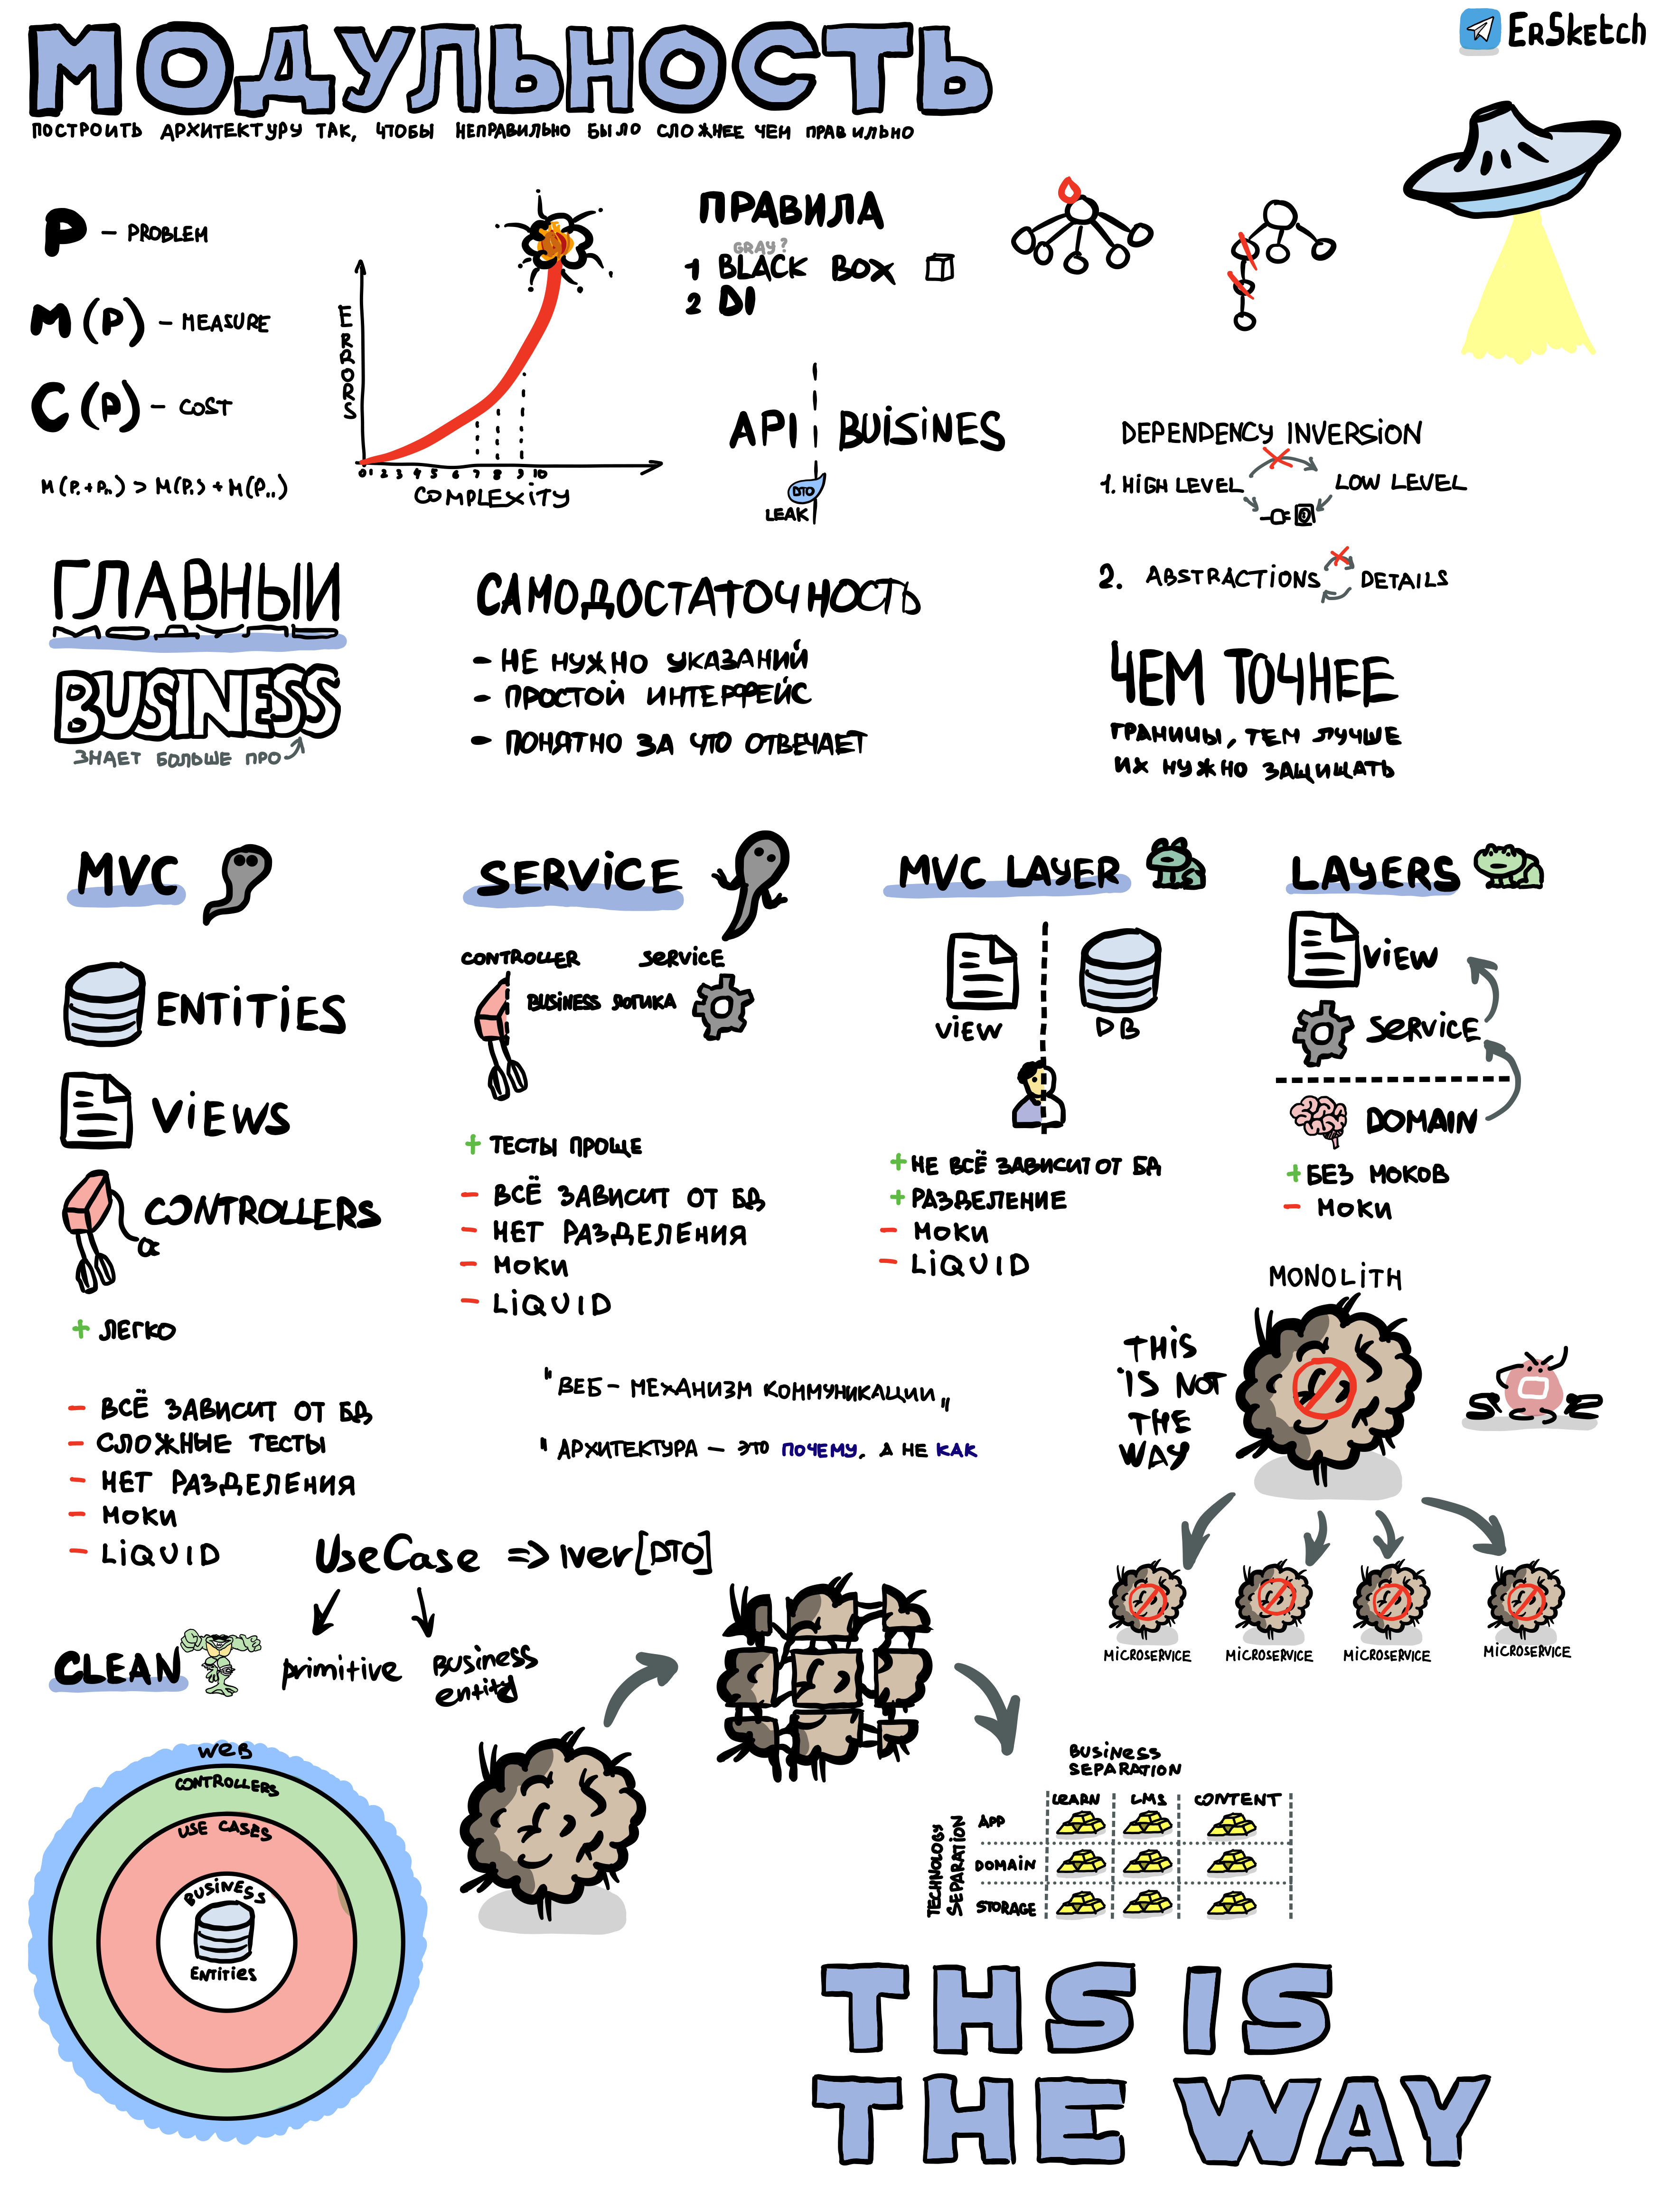 МОДУЛЬНОСТЬ
ErSketch
ПОСТРОИТЬ АРХИТЕКТУРУ ТАК, ЧТОБЫ НЕПРАВИЛЬНО БЫЛО СЛОЖНЕЕ ЧЕМ ПРАВИЛЬНО
P – PROBLEM
M(P) – MEASURE
C(P) – COST
ERRORS
0 1 2 3 4 5 6 7 8 9 10
COMPLEXITY
ПРАВИЛА
GRAY?
1 BLACK BOX
2 DI
API
BUISINES
DTO
LEAK
DEPENDENCY INVERSION
1. HIGH LEVEL
LOW LEVEL
2. ABSTRACTIONS
DETAILS
ГЛАВНЫЙ
BUSINESS
ЗНАЕТ БОЛЬШЕ ПРО
САМОДОСТАТОЧНОСТЬ
– НЕ НУЖНО УКАЗАНИЙ
– ПРОСТОЙ ИНТЕРФЕЙС
– ПОНЯТНО ЗА ЧТО ОТВЕЧАЕТ
ЧЕМ ТОЧНЕЕ
ГРАНИЦЫ, ТЕМ ЛУЧШЕ
ИХ НУЖНО ЗАЩИЩАТЬ
MVC
ENTITIES
VIEWS
CONTROLLERS
+ ЛЕГКО
– ВСЁ ЗАВИСИТ ОТ БД
– СЛОЖНЫЕ ТЕСТЫ
– НЕТ РАЗДЕЛЕНИЯ
– МОКИ
– LIQUID
SERVICE
CONTROLLER
SERVICE
BUSINESS ЛОГИКА
+ ТЕСТЫ ПРОЩЕ
– ВСЁ ЗАВИСИТ ОТ БД
– НЕТ РАЗДЕЛЕНИЯ
– МОКИ
– LIQUID
MVC LAYER
VIEW
DB
+ НЕ ВСЁ ЗАВИСИТ ОТ БД
+ РАЗДЕЛЕНИЕ
– МОКИ
– LIQUID
LAYERS
VIEW
SERVICE
DOMAIN
+ БЕЗ МОКОВ
– МОКИ
"ВЕБ – МЕХАНИЗМ КОММУНИКАЦИИ"
"АРХИТЕКТУРА – ЭТО ПОЧЕМУ, А НЕ КАК
MONOLITH
THIS
IS NOT
THE
WAY
MICROSERVICE
MICROSERVICE
MICROSERVICE
MICROSERVICE
UseCase => iver[DTO]
primitive
Business
entity
CLEAN
WEB
CONTROLLERS
USE CASES
BUSINESS
ENTITIES
BUSINESS
SEPARATION
LEARN LMS CONTENT
TECHNOLOGY
SEPARATION
APP
DOMAIN
STORAGE
THS IS
THE WAY